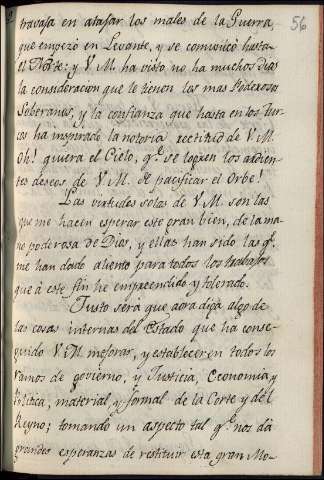 56
travaja en atajar los males de la Guerra,
que empezó en Levante, y se comunicó hasta
el Norte: y V. M. ha visto no ha muchos Dias
la consideracion que le tienen los mas Poderosos
Soberanos, y la confianza que hasta en los Tur-
cos ha inspirado la notoria rectitud de V. M.
Oh! quiera el Cielo, q.e se logren los ardien-
tes deseos de V. M. de pacificar el Orbe!
Las virtudes solas de V. M. son las
que me hacen esperar este gran bien, de la ma-
no poderosa de Dios, y ellas han sido las q.e
me han dado aliento para todos los trabajos
que à este fin he emprendido y tolerado.
Justo será que aora diga algo de
las cosas internas del Estado que ha conse-
guido V. M. mejorar, y establecer en todos los
ramos de govierno, y Justicia, Economia, y
Politica, material, y formal de la Corte y del
Reyno; tomando un aspecto tal q.e nos dá
grandes esperanzas de restituir esta gran Mo-